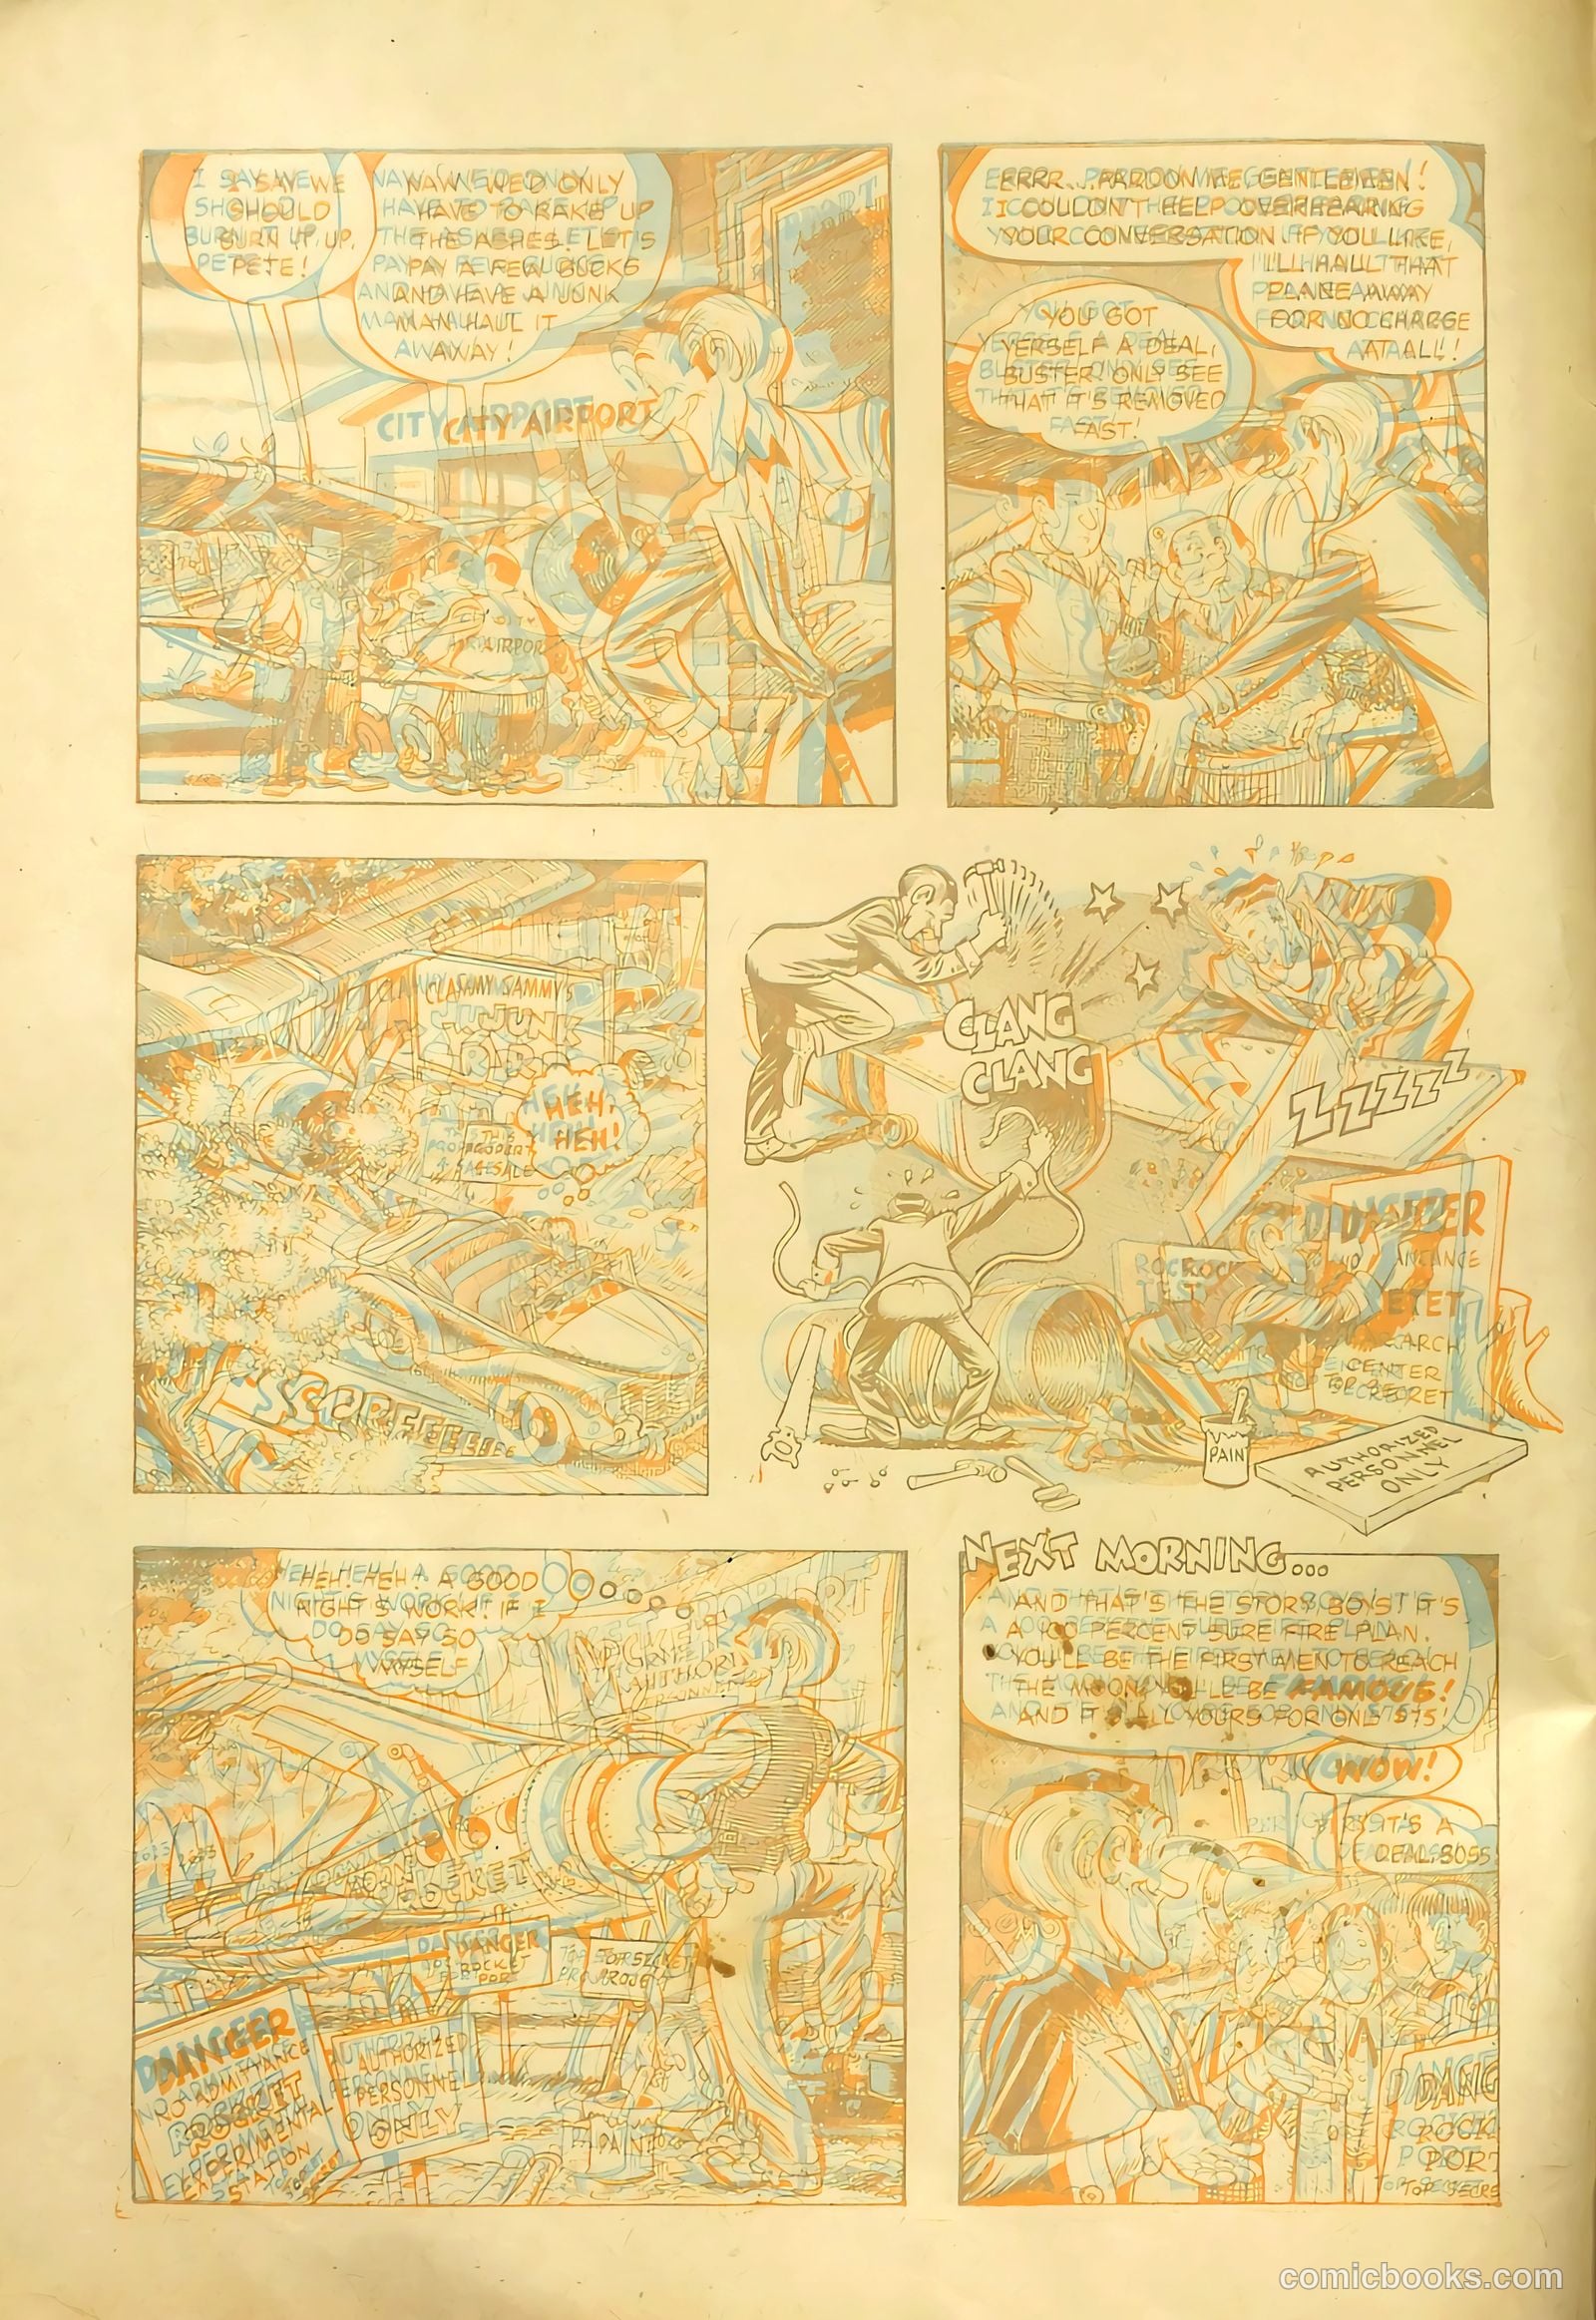 I SAY WE
SHOULD
BURN IT UP,
PETE!
NAW, WE'D ONLY
HAVE TO RAKE UP
THE ASHES! LET'S
PAY A FEW BUCKS
AND HAVE A JUNK
MAN HAUL IT
AWAY!
CITY AIRPORT
AIRPORT
ERRR...PARDON ME, GENTLEMEN!
I COULDN'T HELP OVERHEARING
YOUR CONVERSATION. IF YOU LIKE,
I'LL HAUL THAT
PLANE AWAY
FOR NO CHARGE
AT ALL!!
YOU GOT
YERSELF A DEAL,
BUSTER. ONLY SEE
THAT IT'S REMOVED
FAST!
CLAMMY SAMMY'S
JUNK
THIS
PROPERTY
SALE
HEH,
HEH!
SCOREEEEEEEE
CLANG
CLANG
ZZZZZZ
DANGER
ROCK
TEST
CENTER
TOP SECRET
PAIN
AUTHORIZED
PERSONNEL
ONLY
HEH! HEH! A GOOD
NIGHT'S WORK! IF I
DO SAY SO
MYSELF
MOON ROCKET
DANGER
ROCKET
PORT
TOP SECRET
PROJECT
DANGER
NO ADMITTANCE
ROCKET
EXPERIMENTAL
STATION
AUTHORIZED
PERSONNEL
ONLY
PAINT
NEXT MORNING...
AND THAT'S THE STORY, BOYS! IT'S
A 100 PERCENT SURE FIRE PLAN.
YOU'LL BE THE FIRST MEN TO REACH
THE MOON. YOU'LL BE FAMOUS!
AND IT'S ALL YOURS FOR ONLY $75!
WOW!
IT'S A
DEAL, BOSS
DANG
ROCK
PORT
TOP SECRE
comicbooks.com